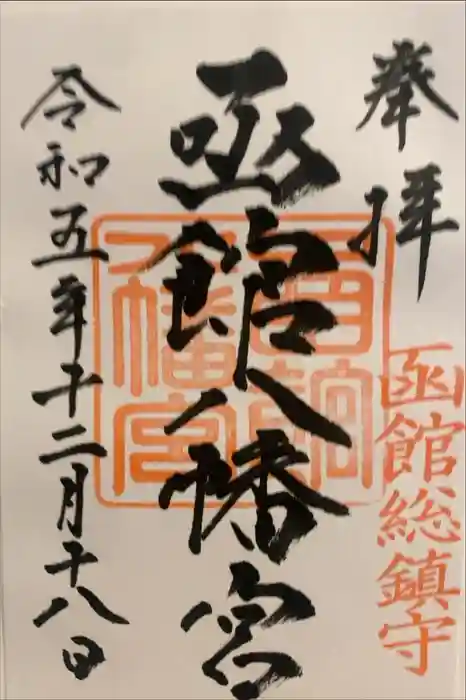 奉拝
函館総鎮守
函館八幡宮
函館八幡宮
令和五年十二月十八日